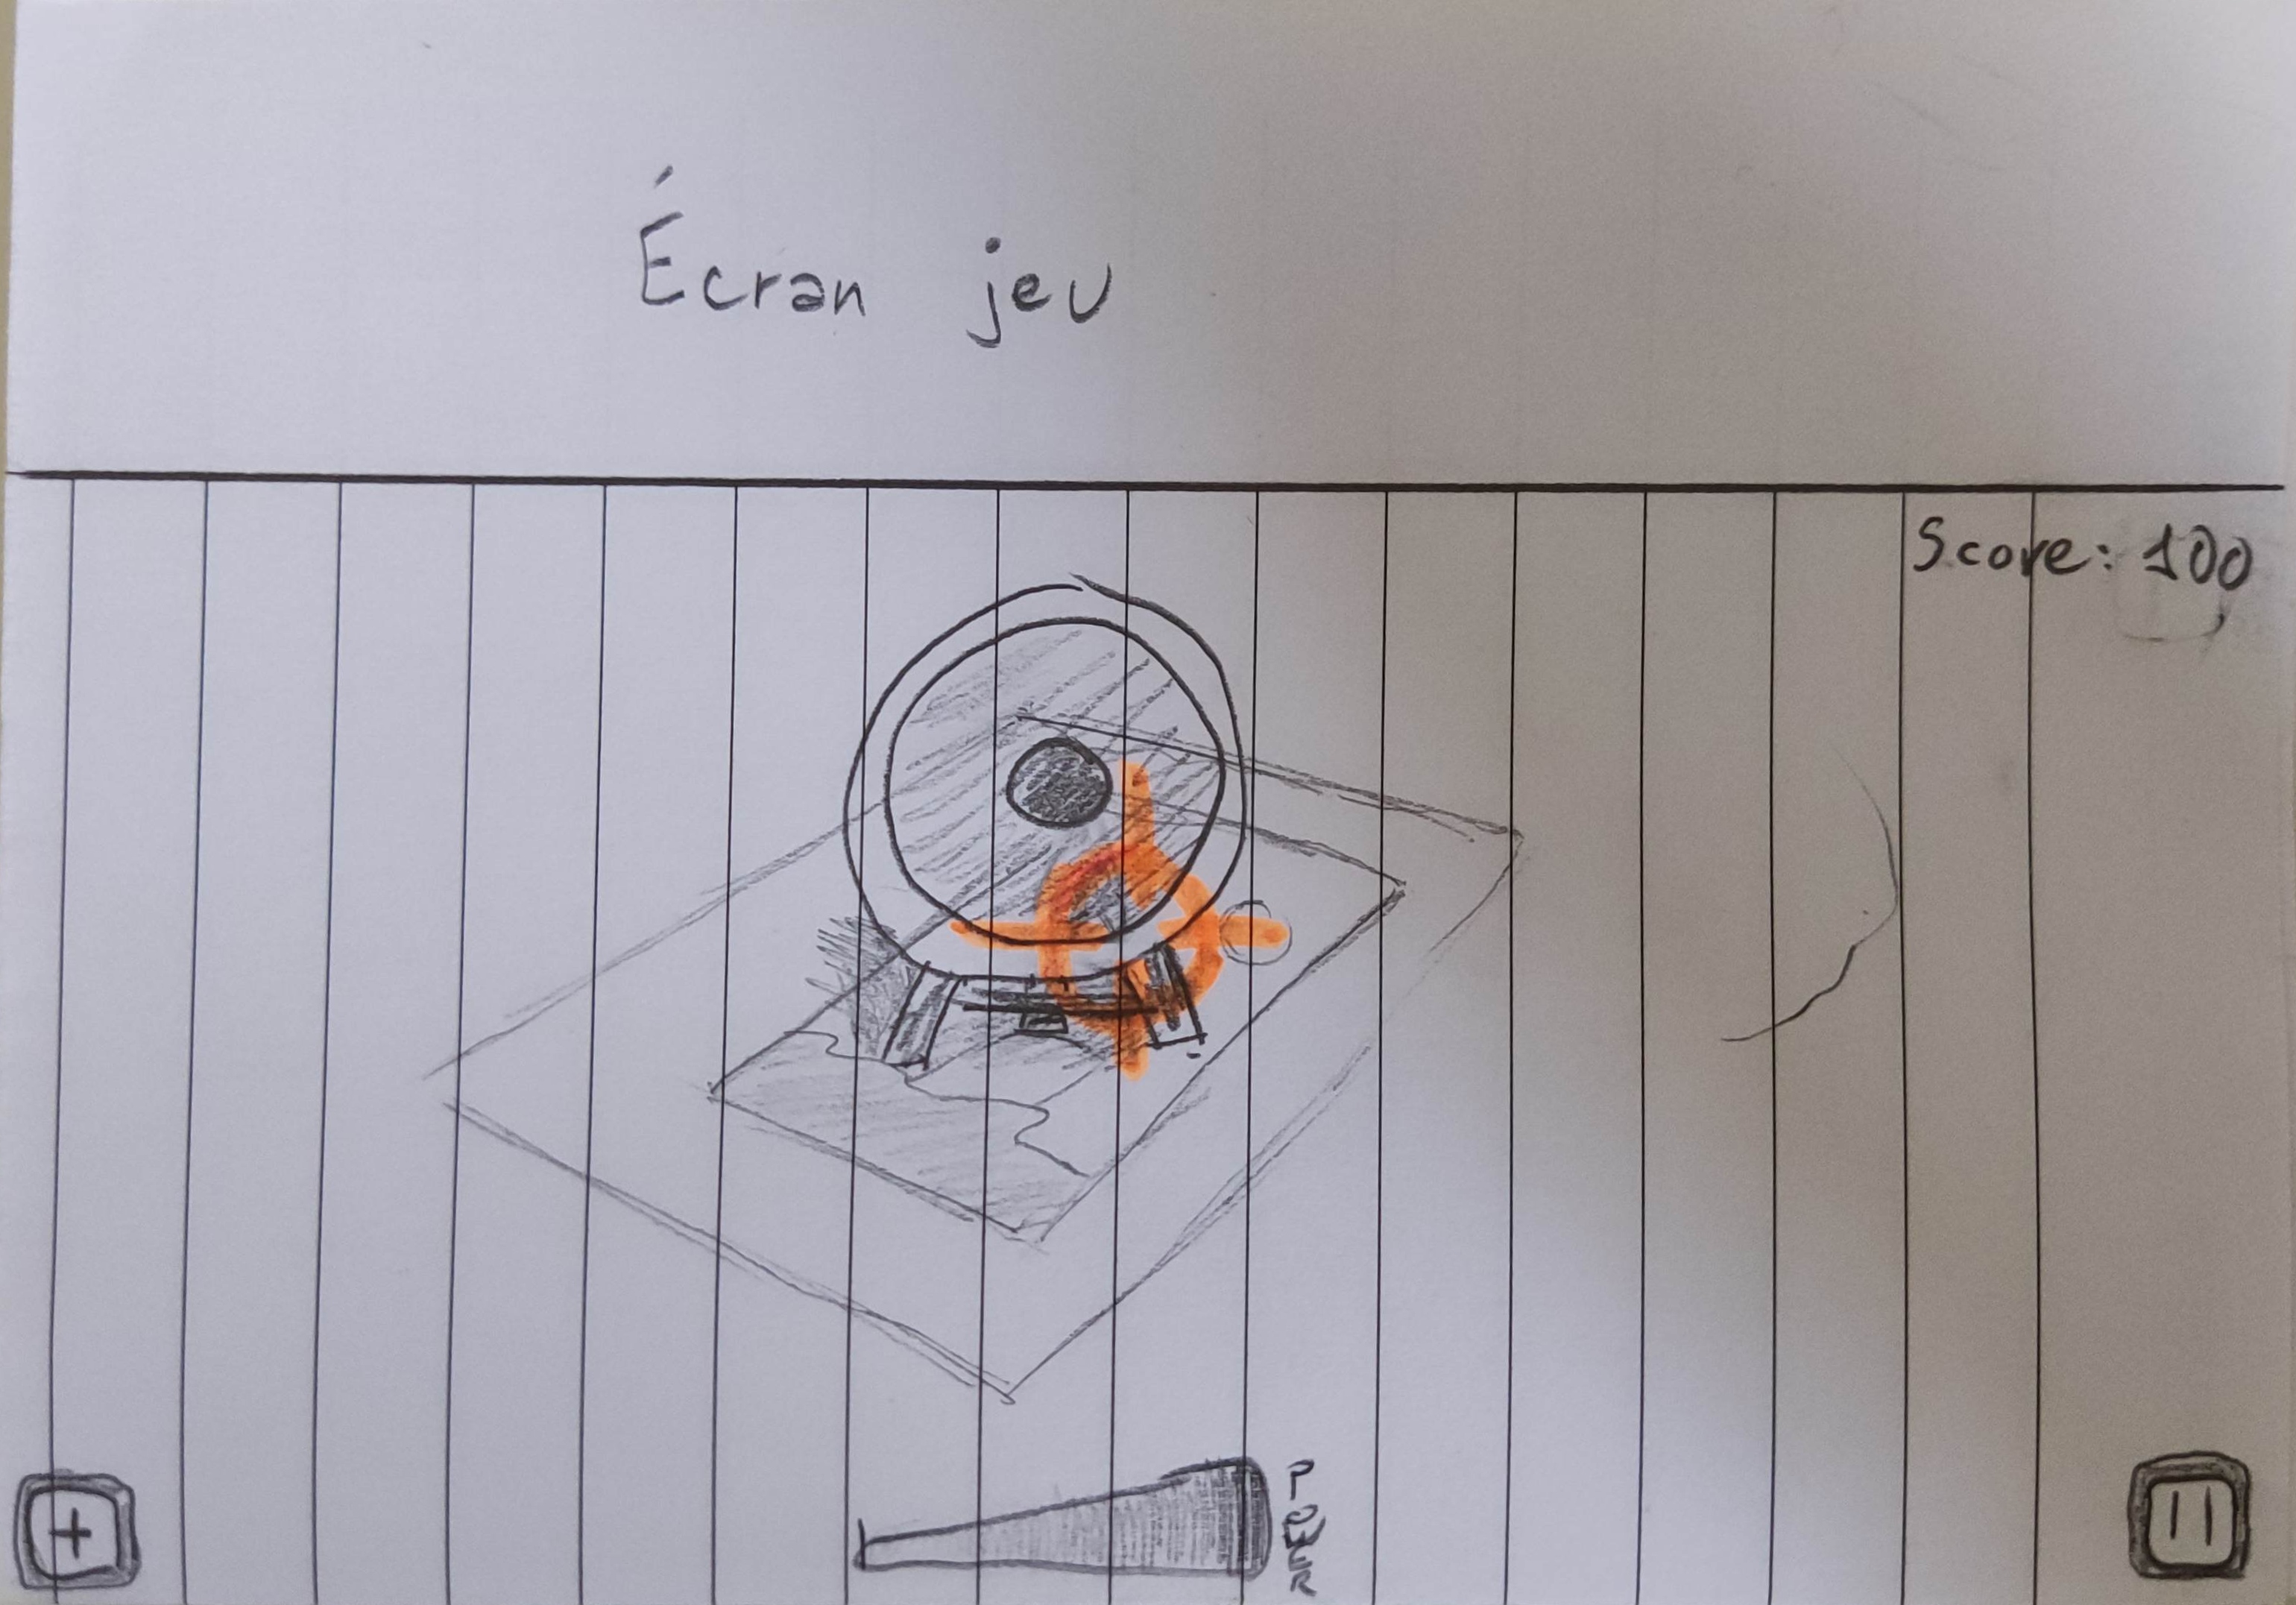 Écran jeu
Score: 100
POWER